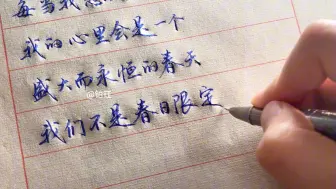 每当我想
我的心里会是一个
盛大而永恒的春天
我们不是春日限定